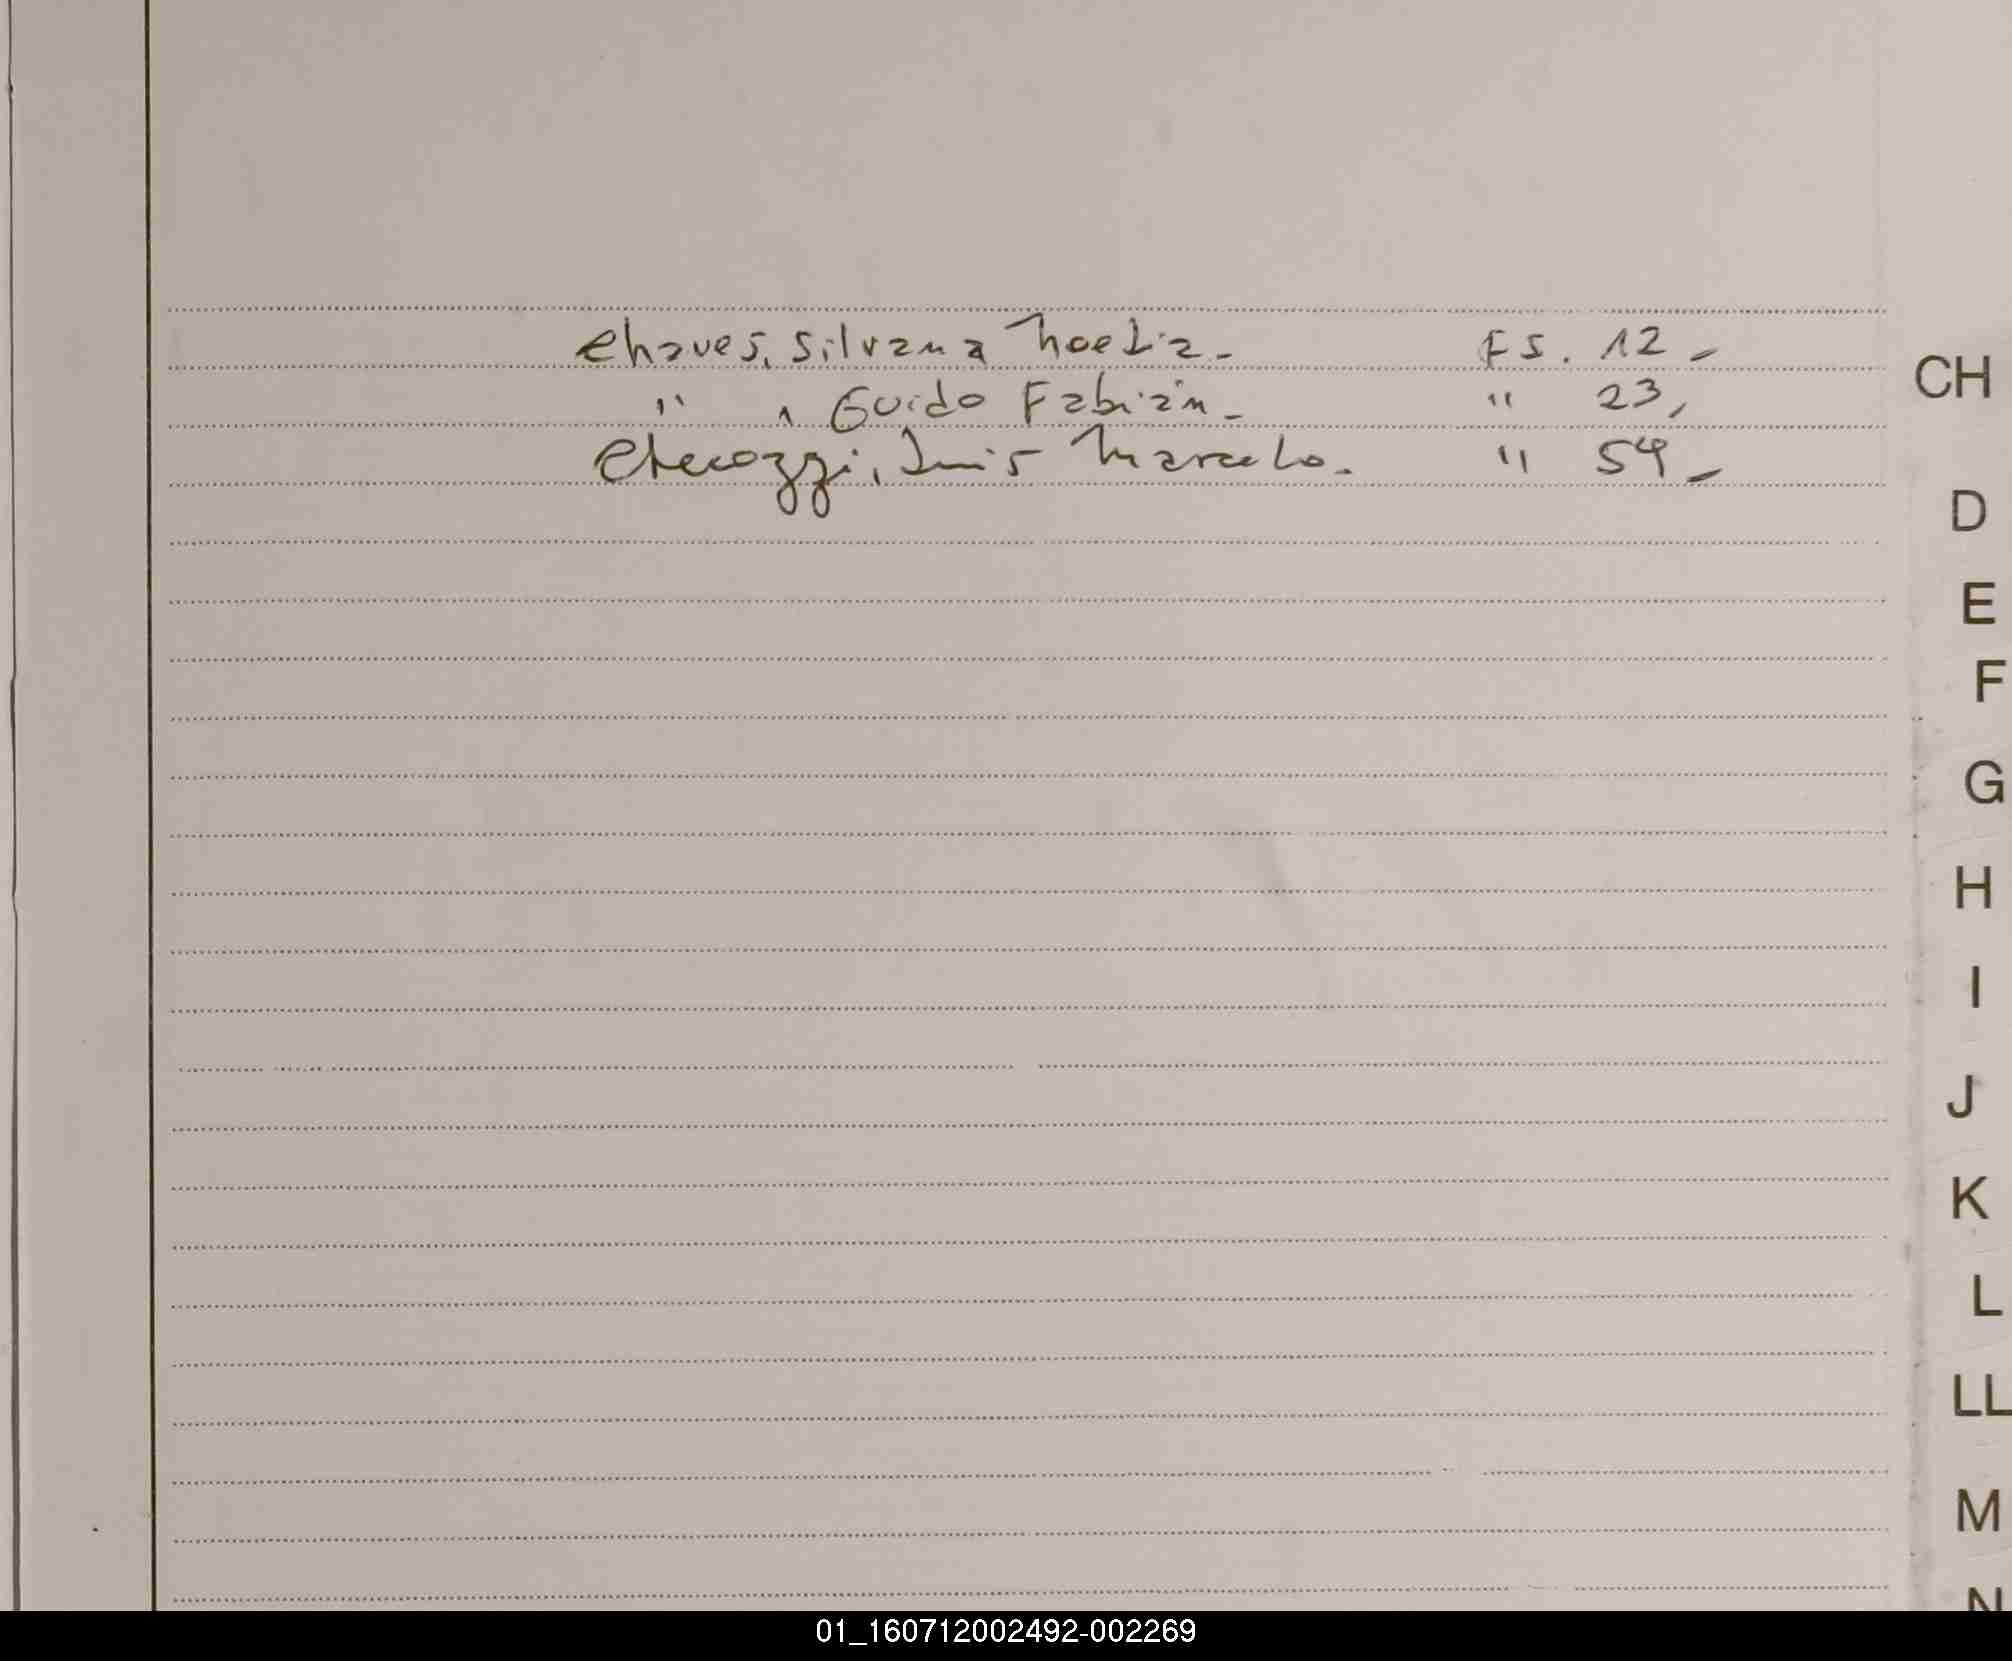 Chaves, Silvana Noelia. FS. 12 -
" , Guido Fabián. - " 23,
Luis Marcelo. " 54 -
CH
D
E
F
G
H
I
J
K
L
LL
M
N
01_160712002492-002269